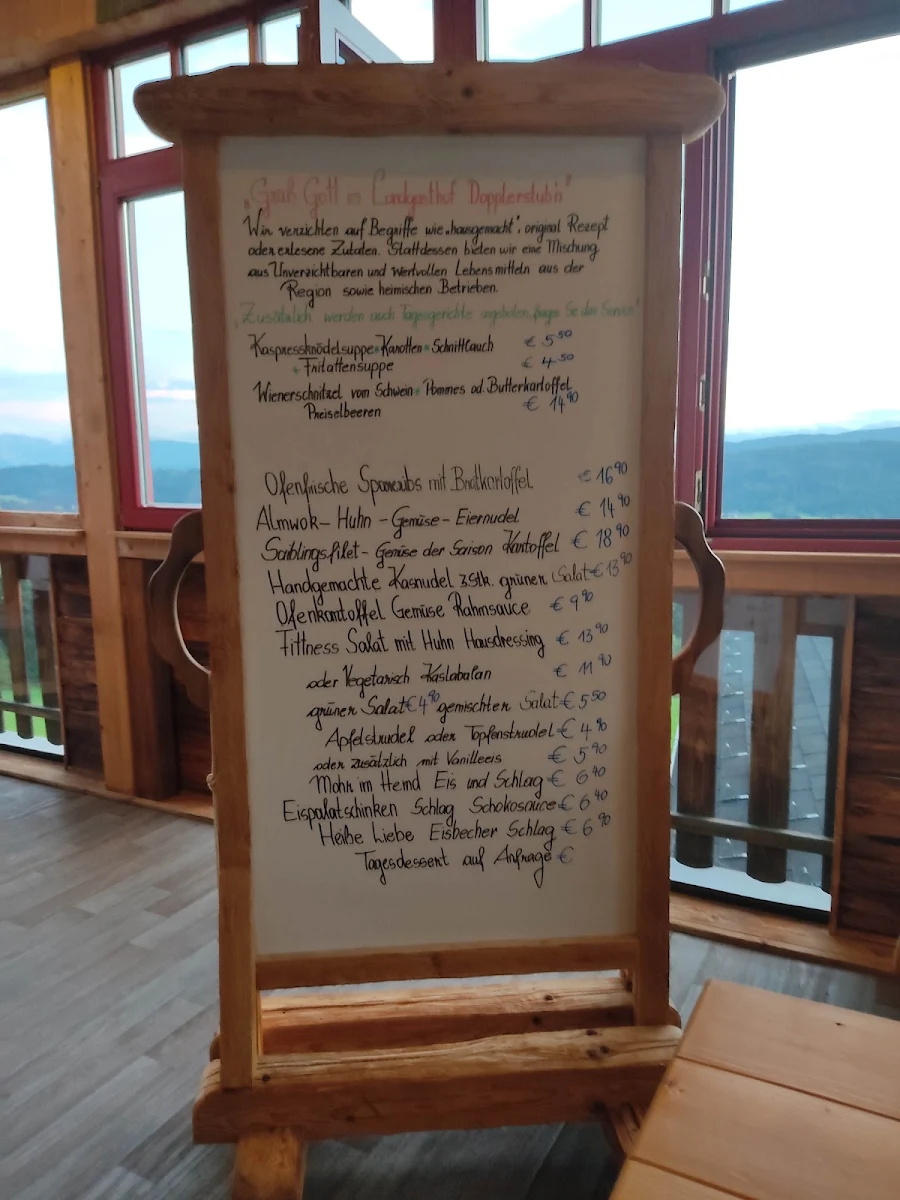 "Grüß Gott im Landgasthof Dopplerstub'n"
Wir verzichten auf Begriffe wie „hausgemacht", original Rezept
oder erlesene Zutaten. Stattdessen bieten wir eine Mischung
aus Unverzichtbaren und wertvollen Lebensmitteln aus der
Region sowie heimischen Betrieben.
"Zusätzlich werden auch Tagesgerichte angeboten, fragen Sie den Service"
Kaspressknödelsuppe + Karotten + Schnittlauch € 5,50
+ Fritattensuppe € 4,50
Wienerschnitzel vom Schwein + Pommes od. Butterkartoffel
Preiselbeeren € 14,90
Ofenfrische Spareribs mit Bratkartoffel € 16,90
Almwok - Huhn - Gemüse - Eiernudel € 14,90
Saiblingsfilet - Gemüse der Saison Kartoffel € 18,90
Handgemachte Kasnudel 3 Stk. grüner Salat € 13,90
Ofenkartoffel Gemüse Rahmsauce € 9,90
Fittness Salat mit Huhn Hausdressing € 13,90
oder Vegetarisch Kaslabalan € 11,90
grüner Salat € 4,90 gemischten Salat € 5,50
Apfelstrudel oder Topfenstrudel € 4,90
oder zusätzlich mit Vanilleeis € 5,90
Mohr im Hemd Eis und Schlag € 6,40
Eispalatschinken Schlag Schokosauce € 6,40
Heiße Liebe Eisbecher Schlag € 6,90
Tagesdessert auf Anfrage €